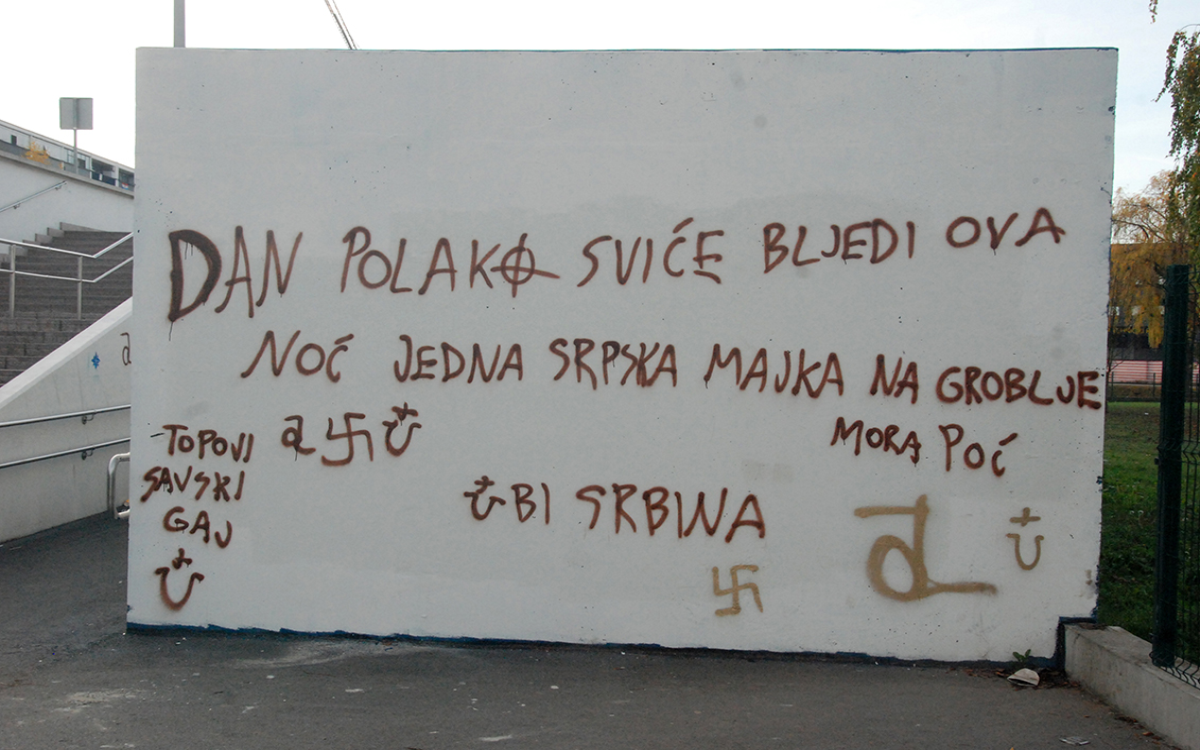 DAN POLAKO SVIĆE BLJEDI OVA
NOĆ JEDNA SRPSKA MAJKA NA GROBLJE
MORA POĆ
TOPOVI
SAVSKI
GAJ
U
U
UBI SRBINA
U